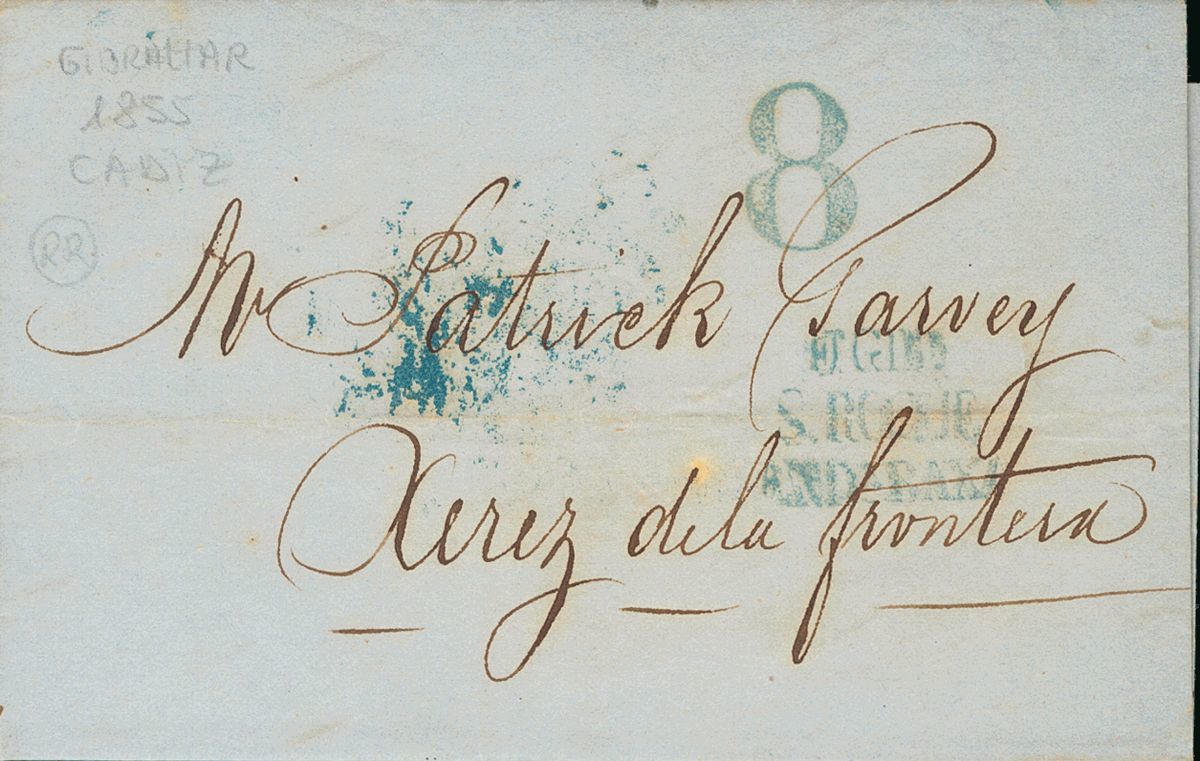 GIBRALTAR
1855
CADIZ
RR
8
Mr Patrick Garvey
S. ROQUE
Xerez de la frontera